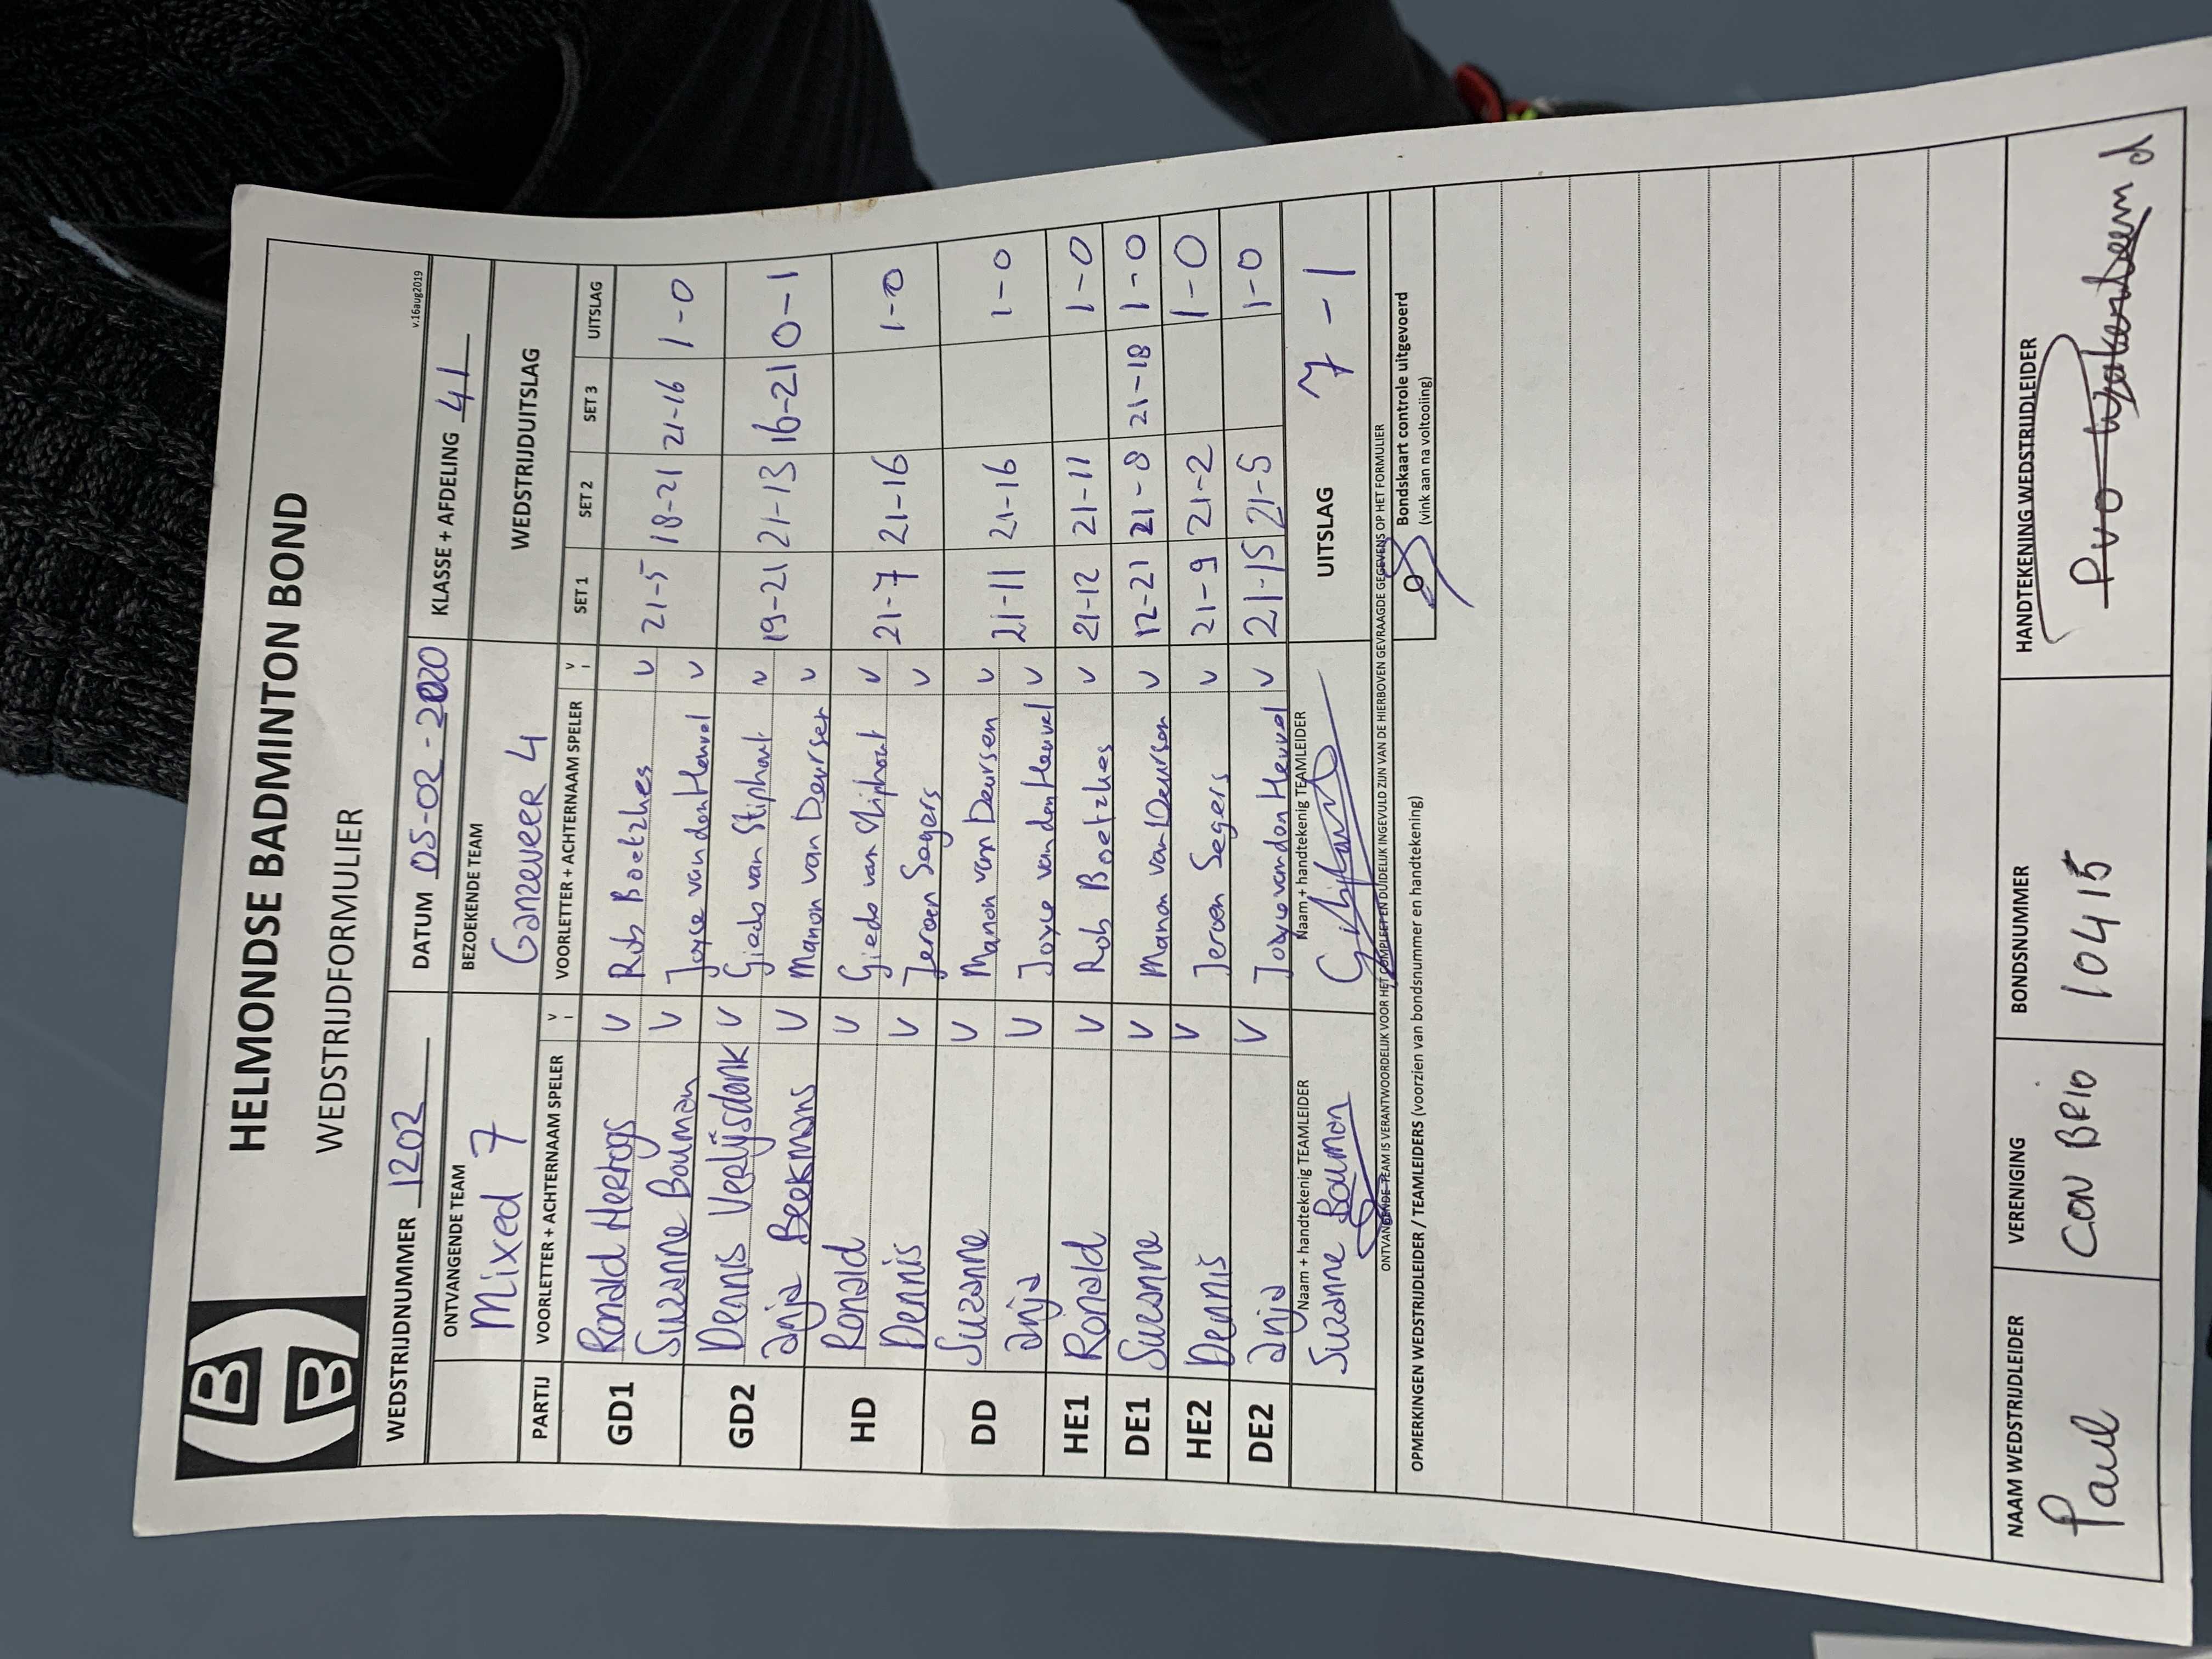 HELMONDSE BADMINTON BOND
WEDSTRIJDFORMULIER
v.16aug2019
WEDSTRIJDNUMMER 1202 DATUM 05-02-2020 KLASSE + AFDELING 41
ONTVANGENDE TEAM BEZOEKENDE TEAM WEDSTRIJDUITSLAG
Mixed 7 Ganzeveer 4
PARTIJ VOORLETTER + ACHTERNAAM SPELER V I VOORLETTER + ACHTERNAAM SPELER V I SET 1 SET 2 SET 3 UITSLAG
GD1 Ronald Hertogs V Rob Boetzkes V 21-5 18-21 21-16 1-0
Suzanne Bouman V Joyce van den Heuvel V
GD2 Dennis Verlijsdonk V Giedo van Stiphout V 19-21 21-13 16-21 0-1
Anja Beekmans V Manon van Deursen V
HD Ronald V Giedo van Stiphout V 21-7 21-16 1-0
Dennis V Jeroen Segers V
DD Suzanne V Manon van Deursen V 21-11 21-16 1-0
Anja V Joyce van den Heuvel V
HE1 Ronald V Rob Boetzkes V 21-12 21-11 1-0
DE1 Suzanne V Manon van Deursen V 12-21 21-8 21-18 1-0
HE2 Dennis V Jeroen Segers V 21-9 21-2 1-0
DE2 Anja V Joyce van den Heuvel V 21-15 21-5 1-0
Naam + handtekenig TEAMLEIDER Naam + handtekenig TEAMLEIDER UITSLAG 7-1
Suzanne Bouman
ONTVANGENDE TEAM IS VERANTWOORDELIJK VOOR HET COMPLEET EN DUIDELIJK INGEVULD ZIJN VAN DE HIERBOVEN GEVRAAGDE GEGEVENS OP HET FORMULIER
Bondskaart controle uitgevoerd
(vink aan na voltooiing)
OPMERKINGEN WEDSTRIJDLEIDER / TEAMLEIDERS (voorzien van bondsnummer en handtekening)
NAAM WEDSTRIJDLEIDER VERENIGING BONDSNUMMER HANDTEKENING WEDSTRIJDLEIDER
Paul CON BRIO 10415